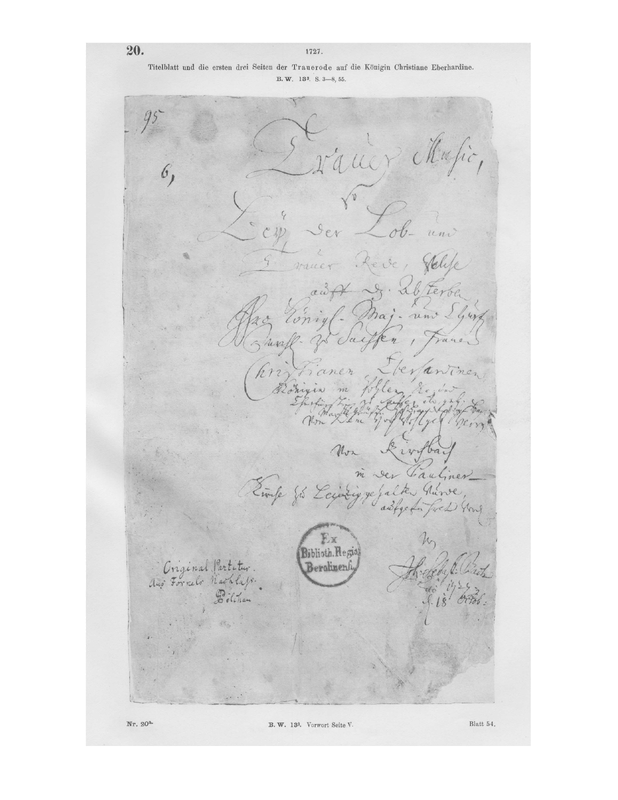 20.
1727.
Titelblatt und die ersten drei Seiten der Trauerode auf die Königin Christiane Eberhardine.
B.W. 13³. S. 3—8, 55.
95
6,
Trauer Music,
so
Bey der Lob- und
Trauer Rede, welche
auff das Absterben
Ihro Königl. Maj. und Churf.
zu Sachsen, Frauen
Christianen Eberhardinen
Königin in Pohlen
Von dem
von Kirchbach
in der Pauliner-
Kirche zu Leipzig gehalten wurde,
aufgeführet
von
18 Octob.
Original Partitur.
Aus Forkels Nachlasse.
Pölchau
Ex
Biblioth. Regia
Berolinensi.
Nr. 20ᵃ·
B.W. 13³. Vorwort Seite V.
Blatt 54.